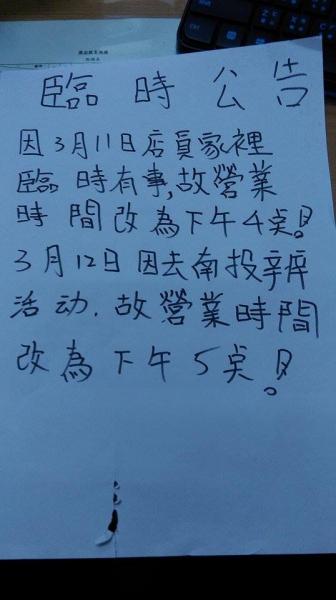 臨時公告
因3月11日店員家裡
臨時有事,故營業
時間改為下午4点!
3月12日因去南投辦
活动.故營業時間
改為下午5点!